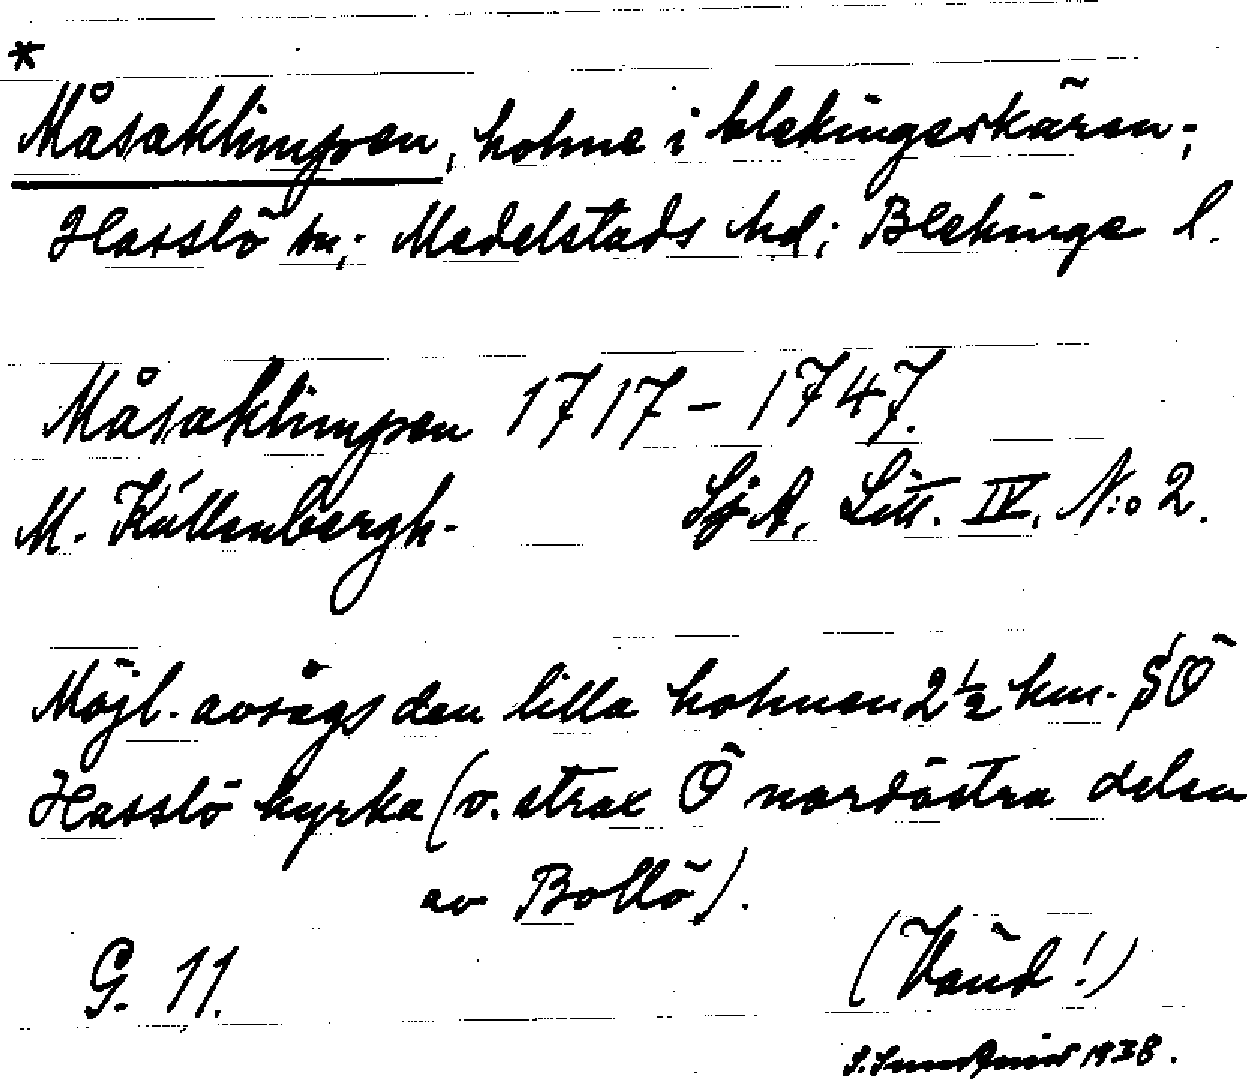 *
Måsaklimpen, holme i blekingeskären;
Hasslö sn; Medelstads hd; Blekinge l.
Måsaklimpen 1717 – 1747.
M. Küllenbergh. SjA, Litt. IV, N:o 2.
Möjl. avsågs den lilla holmen 2½ km. SÖ
Hasslö kyrka (v. strax Ö nordöstra delen
av Bollö).
G. 11.
(Vänd!)
1938.